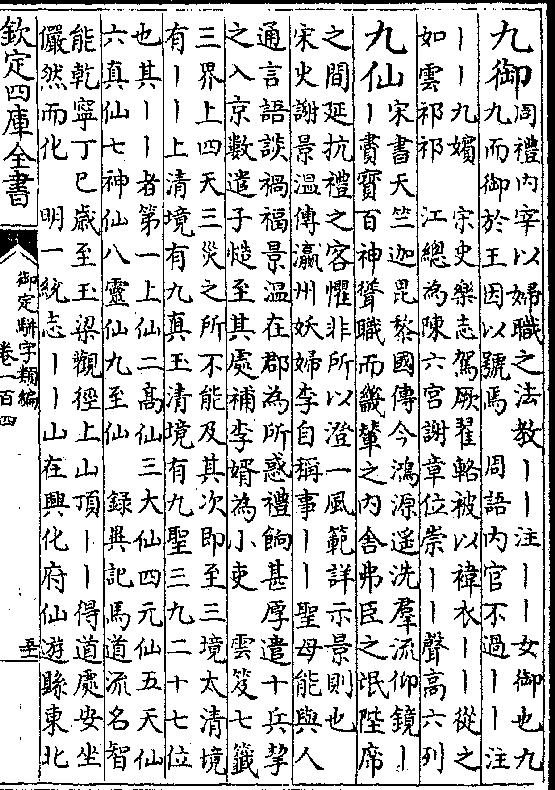 九御 周禮内宰以婦職之法教丨丨注丨丨女御也九
九而御於王因以號焉 周語内官不過丨丨注
丨丨九嬪 宋史樂志駕厥翟輅被以褘衣丨丨從之
如雲祁祁 江總為陳六宮謝章位崇丨丨聲高六列
九仙 宋書天竺迦毘黎國傳今鴻源遥洗羣流仰鏡丨
丨賮寳百神聳職而畿輦之内舍弗臣之氓陛席
之間延抗禮之客懼非所以澄一風範詳示景則也
宋史謝景温傳瀛州妖婦李自稱事丨丨聖母能與人
通言語談禍福景温在郡為所惑禮餉甚厚遣十兵挈
之入京數遣子慥至其處補李婿為小吏 雲笈七籤
三界上四天三災之所不能及其次即至三境太清境
有丨丨上清境有九真玉清境有九聖三九二十七位
也其丨丨者第一上仙二髙仙三大仙四元仙五天仙
六真仙七神仙八靈仙九至仙 録異記馬道流名智
能乾寧丁巳歳至玉梁觀徑上山頂丨丨得道處安坐
儼然而化 明一統志丨丨山在興化府仙遊縣東北
欽定四庫全書
御定駢字類編
卷一百四